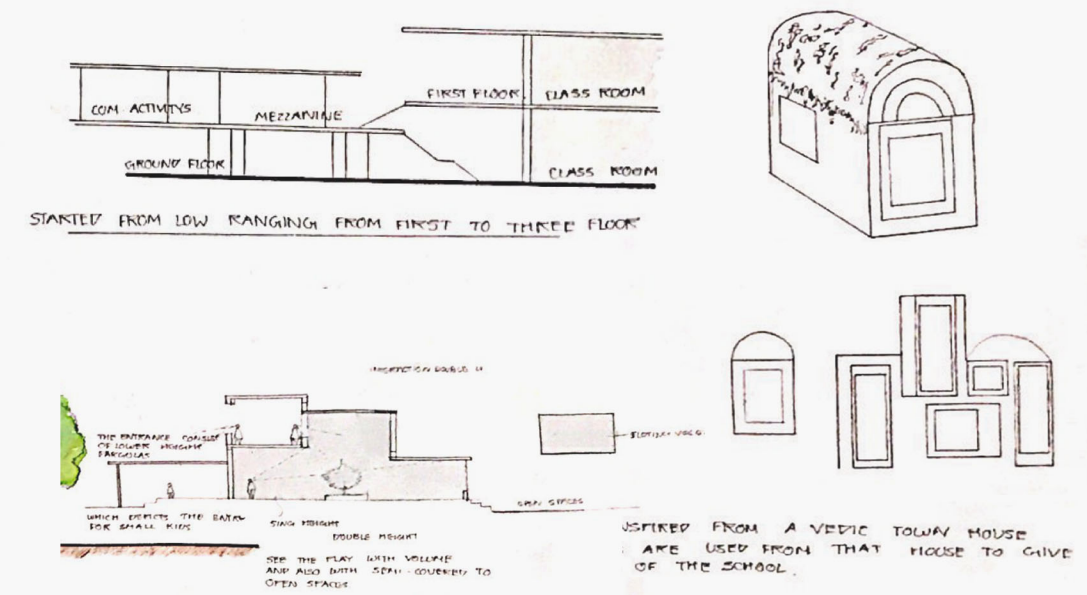 FIRST FLOOR
CLASS ROOM
COM. ACTIVITYS
MEZZANINE
GROUND FLOOR
CLASS ROOM
STARTED FROM LOW RANGING FROM FIRST TO THREE FLOOR
DOUBLE
THE ENTRANCE CONSIST
OF LOWER HEIGHT
PARGOLAS
OPEN SPACES
WHICH DEPICTS THE ENTRY
FOR SMALL KIDS
SING HEIGHT
DOUBLE HEIGHT
SEE THE PLAY WITH VOLUME
AND ALSO WITH SEMI-COVERED TO
OPEN SPACES
NSPIRED FROM A VEDIC TOWN HOUSE
ARE USED FROM THAT HOUSE TO GIVE
OF THE SCHOOL.